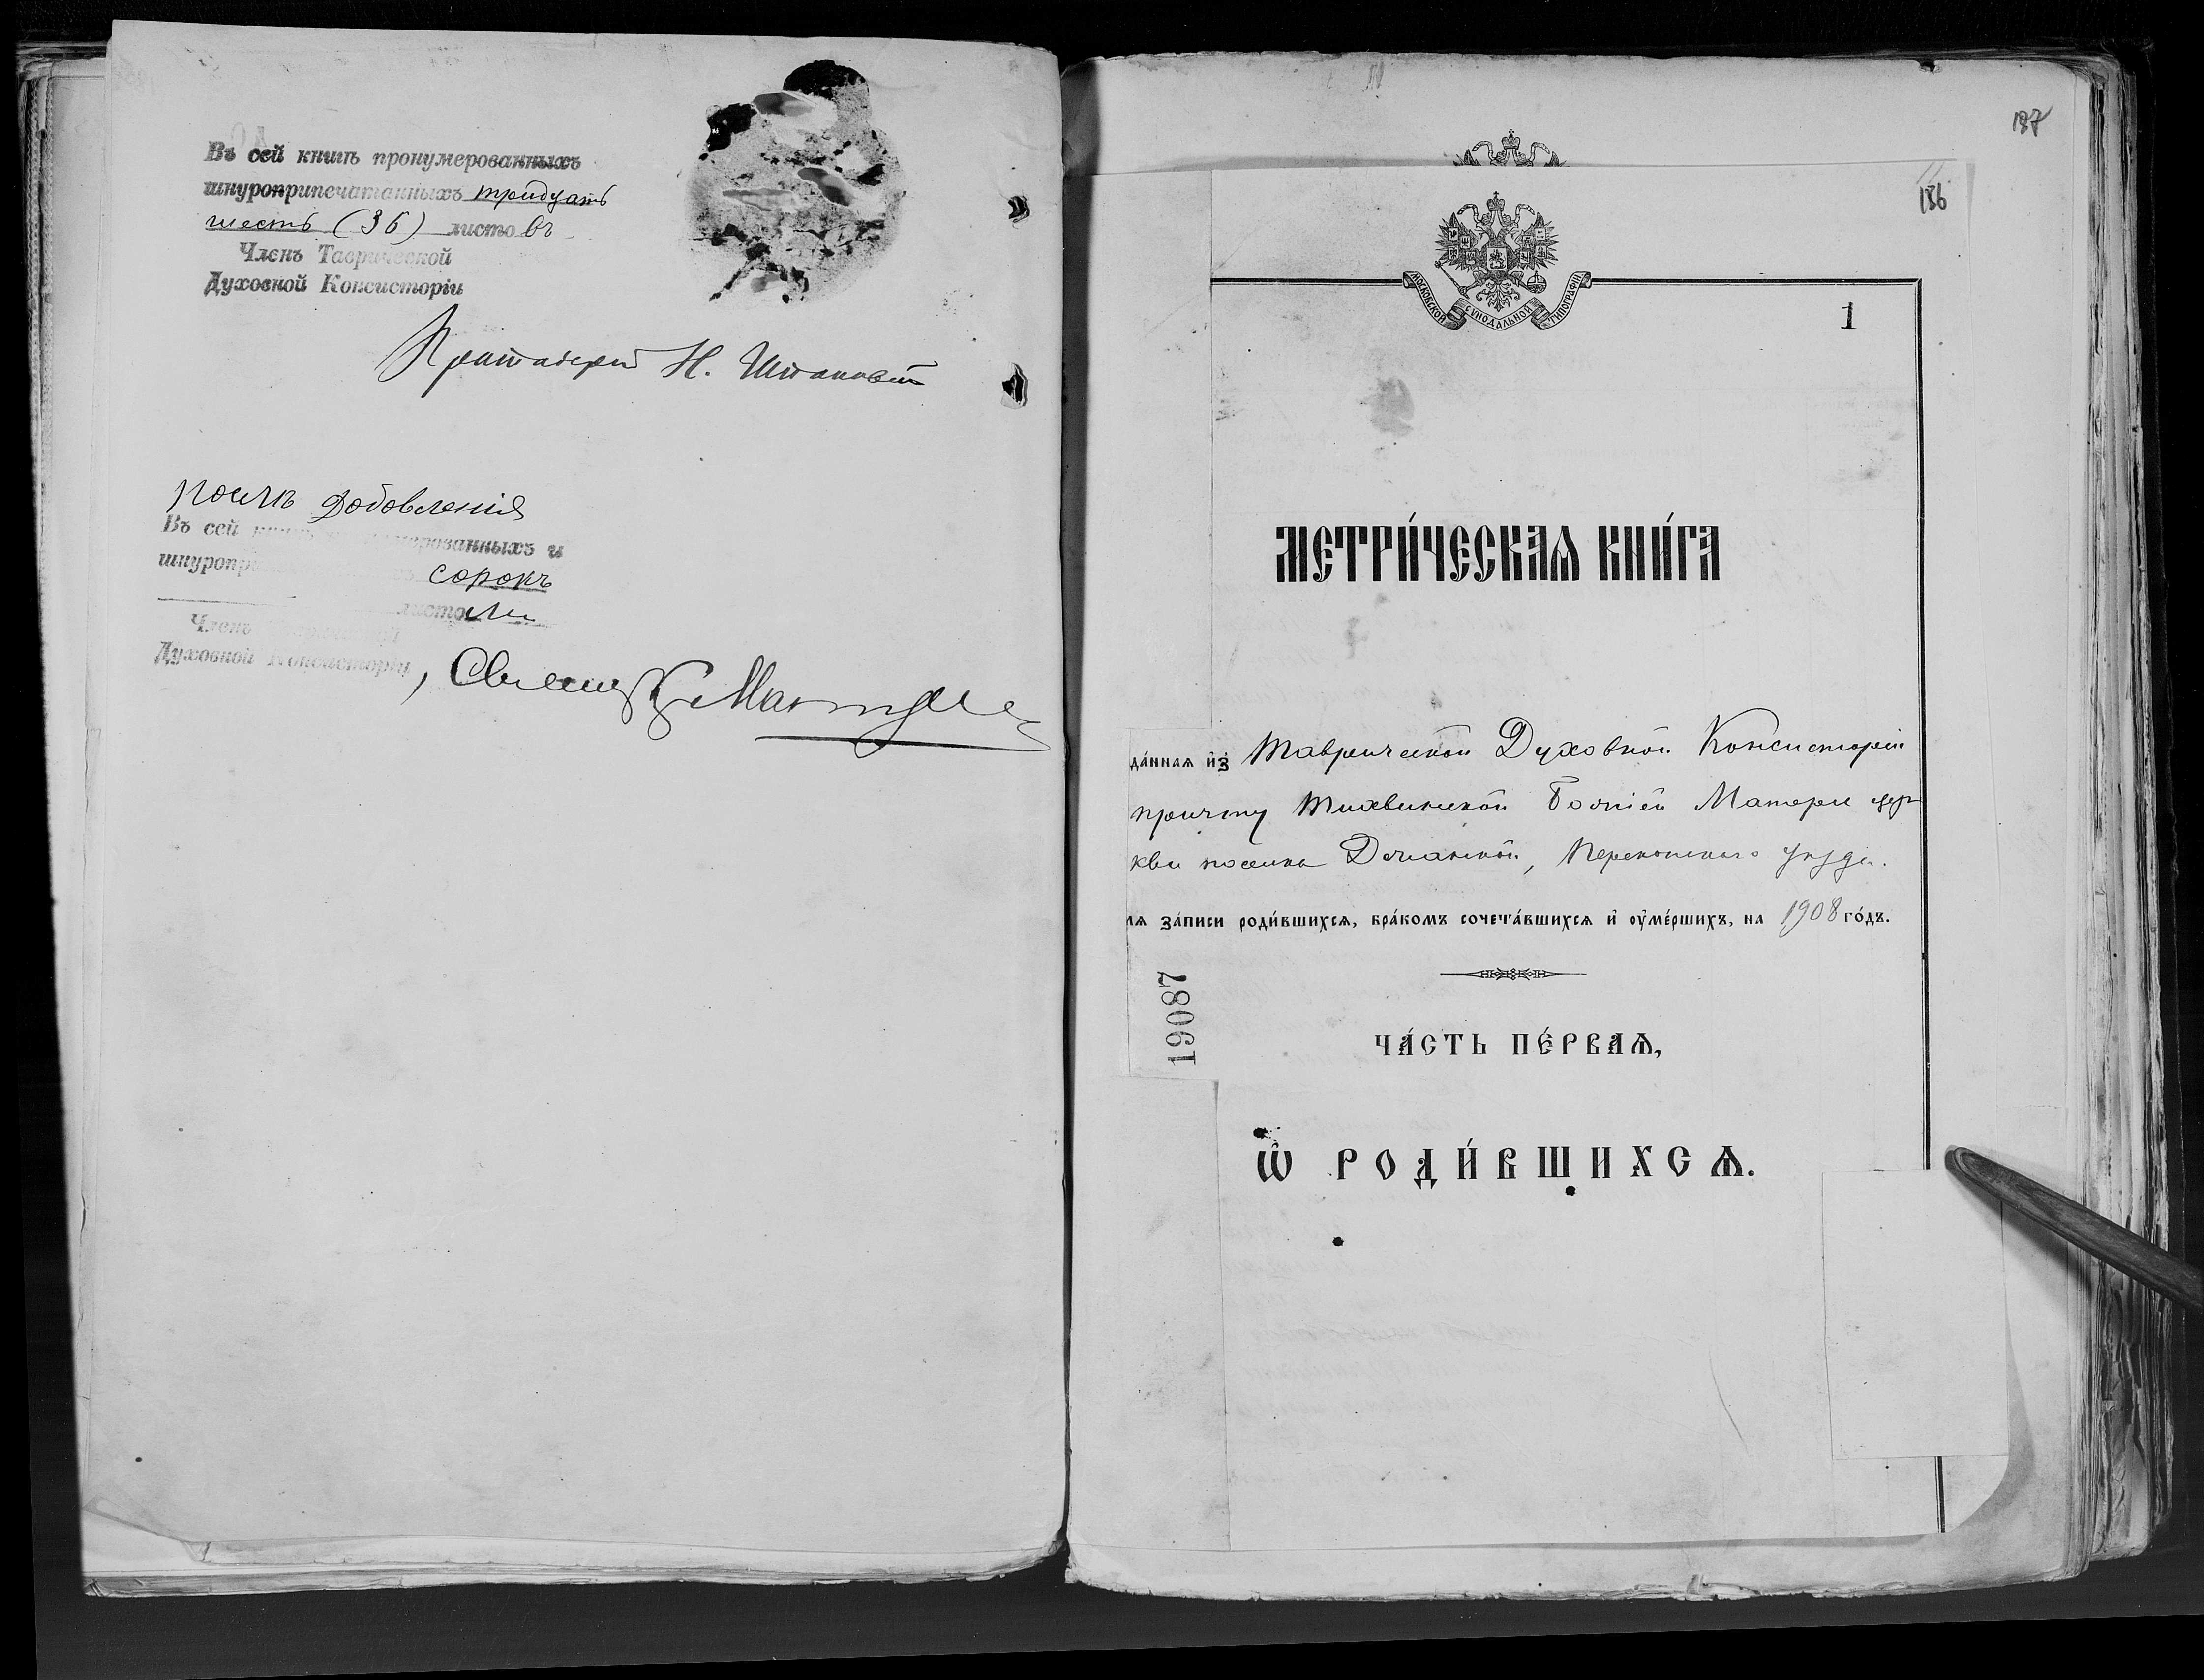 Въ сей книгѣ пронумерованныхъ
шнуроприпечатанныхъ тридцать
шесть (36) листовъ
Членъ Таврической
Духовной Консисторіи
Протоіерей Н.
послѣ добовленія
Въ сей нумерованныхъ и
шнуропри сорокъ
листо
Членъ
Духовной Консисторіи, Священ
187
186
МОСКОВСКОЙ СУНОДАЛЬНОЙ ТИПОГРАФІИ
1
МЕТРИ́ЧЕСКАѦ КНИ́ГА
да́ннаѧ и҆з̾ Таврической Духовной Консисторіи
причту Тихвинской Божіей Матери цер
кви поселка Перекопскаго уѣзда.
лѧ за́писи роди́вшихсѧ, бра́комъ сочета́вшихсѧ и҆ ᲂу҆ме́ршихъ, на 1908 го́дъ.
19087
ЧА́СТЬ ПЕ́РВАѦ,
Ѽ РОДИ́ВШИХСѦ.